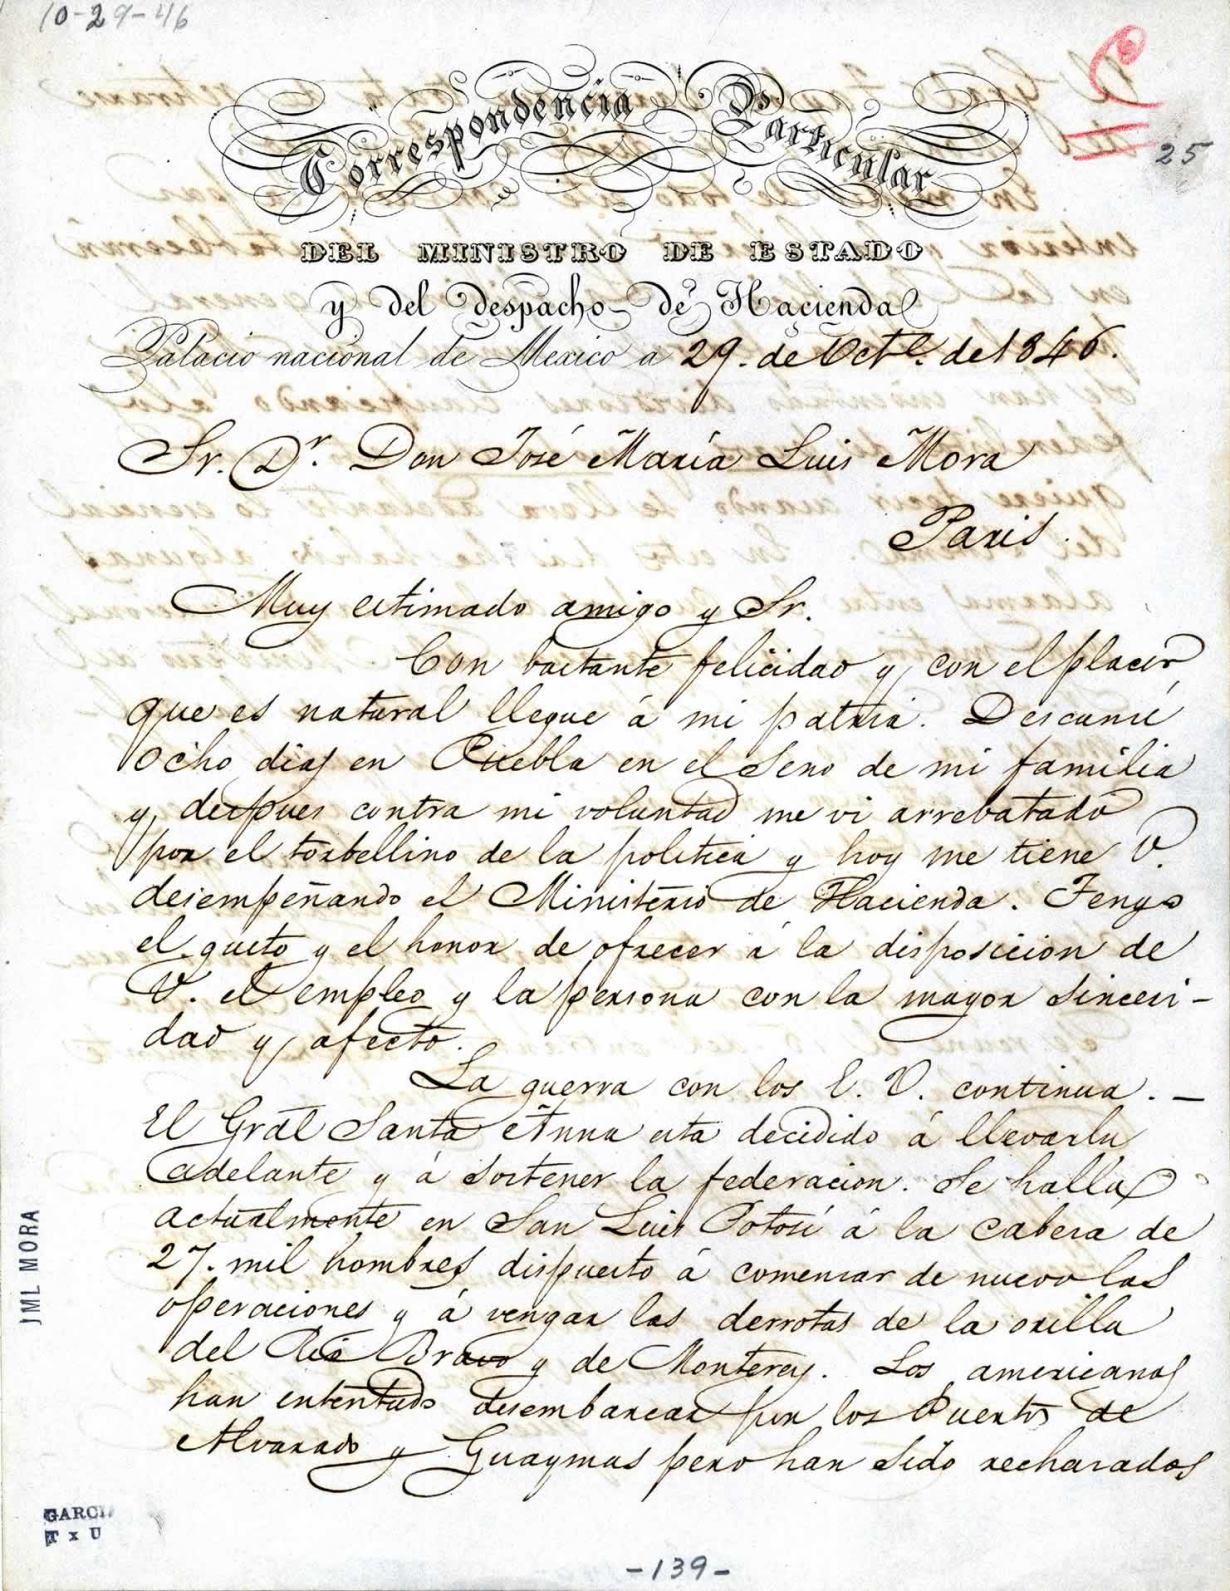 10-29-46
Correspondencia Particular
25
DEL MINISTRO DE ESTADO
y del despacho de Hacienda
Palacio nacional de Mexico a 29. de Oct.e de 1846.
Sr. Dr. Don José María Luis Mora
Paris.
Muy estimado amigo y Sr.
Con bastante felicidad y con el placer
que es natural llegue á mi patria. Descansé
ocho dias en Puebla en el seno de mi familia
y despues contra mi voluntad me vi arrebatado
por el torbellino de la politica y hoy me tiene V.
desempeñando el Ministerio de Hacienda. Tengo
el gusto y el honor de ofrecer á la disposicion de
V. el empleo y la persona con la mayor sinceri-
dad y afecto.
La guerra con los E. U. continua. –
El Gral Santa Anna esta decidido á llevarla
adelante y á sostener la federacion. Se halla
actualmente en San Luis Potosí á la cabeza de
27. mil hombres dispuesto á comenzar de nuevo las
operaciones y á vengar las derrotas de la orilla
del Rio Bravo y de Monterey. Los americanos
han intentado desembarcar por los Puertos de
Alvarado y Guaymas pero han sido rechazados
JML MORA
GARCIA
T x U
-139-